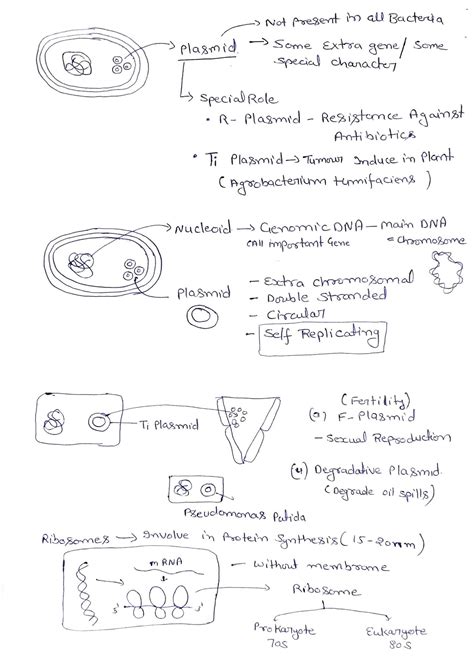 Not present in all Bacteria
Plasmid → Some Extra gene/ Some
special character
Special Role
• R- Plasmid - Resistance Against
Antibiotics
• Ti Plasmid → Tumour Induce in Plant
(Agrobacterium tumifaciens)
Nucleoid → Genomic DNA - main DNA
(All important Gene = chromosome
Plasmid
- Extra chromosomal
- Double Stranded
- Circular
- Self Replicating
Ti Plasmid
(Fertility)
F- Plasmid
- Sexual Reproduction
Degradative Plasmid
(Degrade oil spills)
Pseudomonas Putida
Ribosomes → Involve in Protein Synthesis (15-20nm)
- without membrane
mRNA
5' 3'
Ribosome
Prokaryote Eukaryote
70S 80S